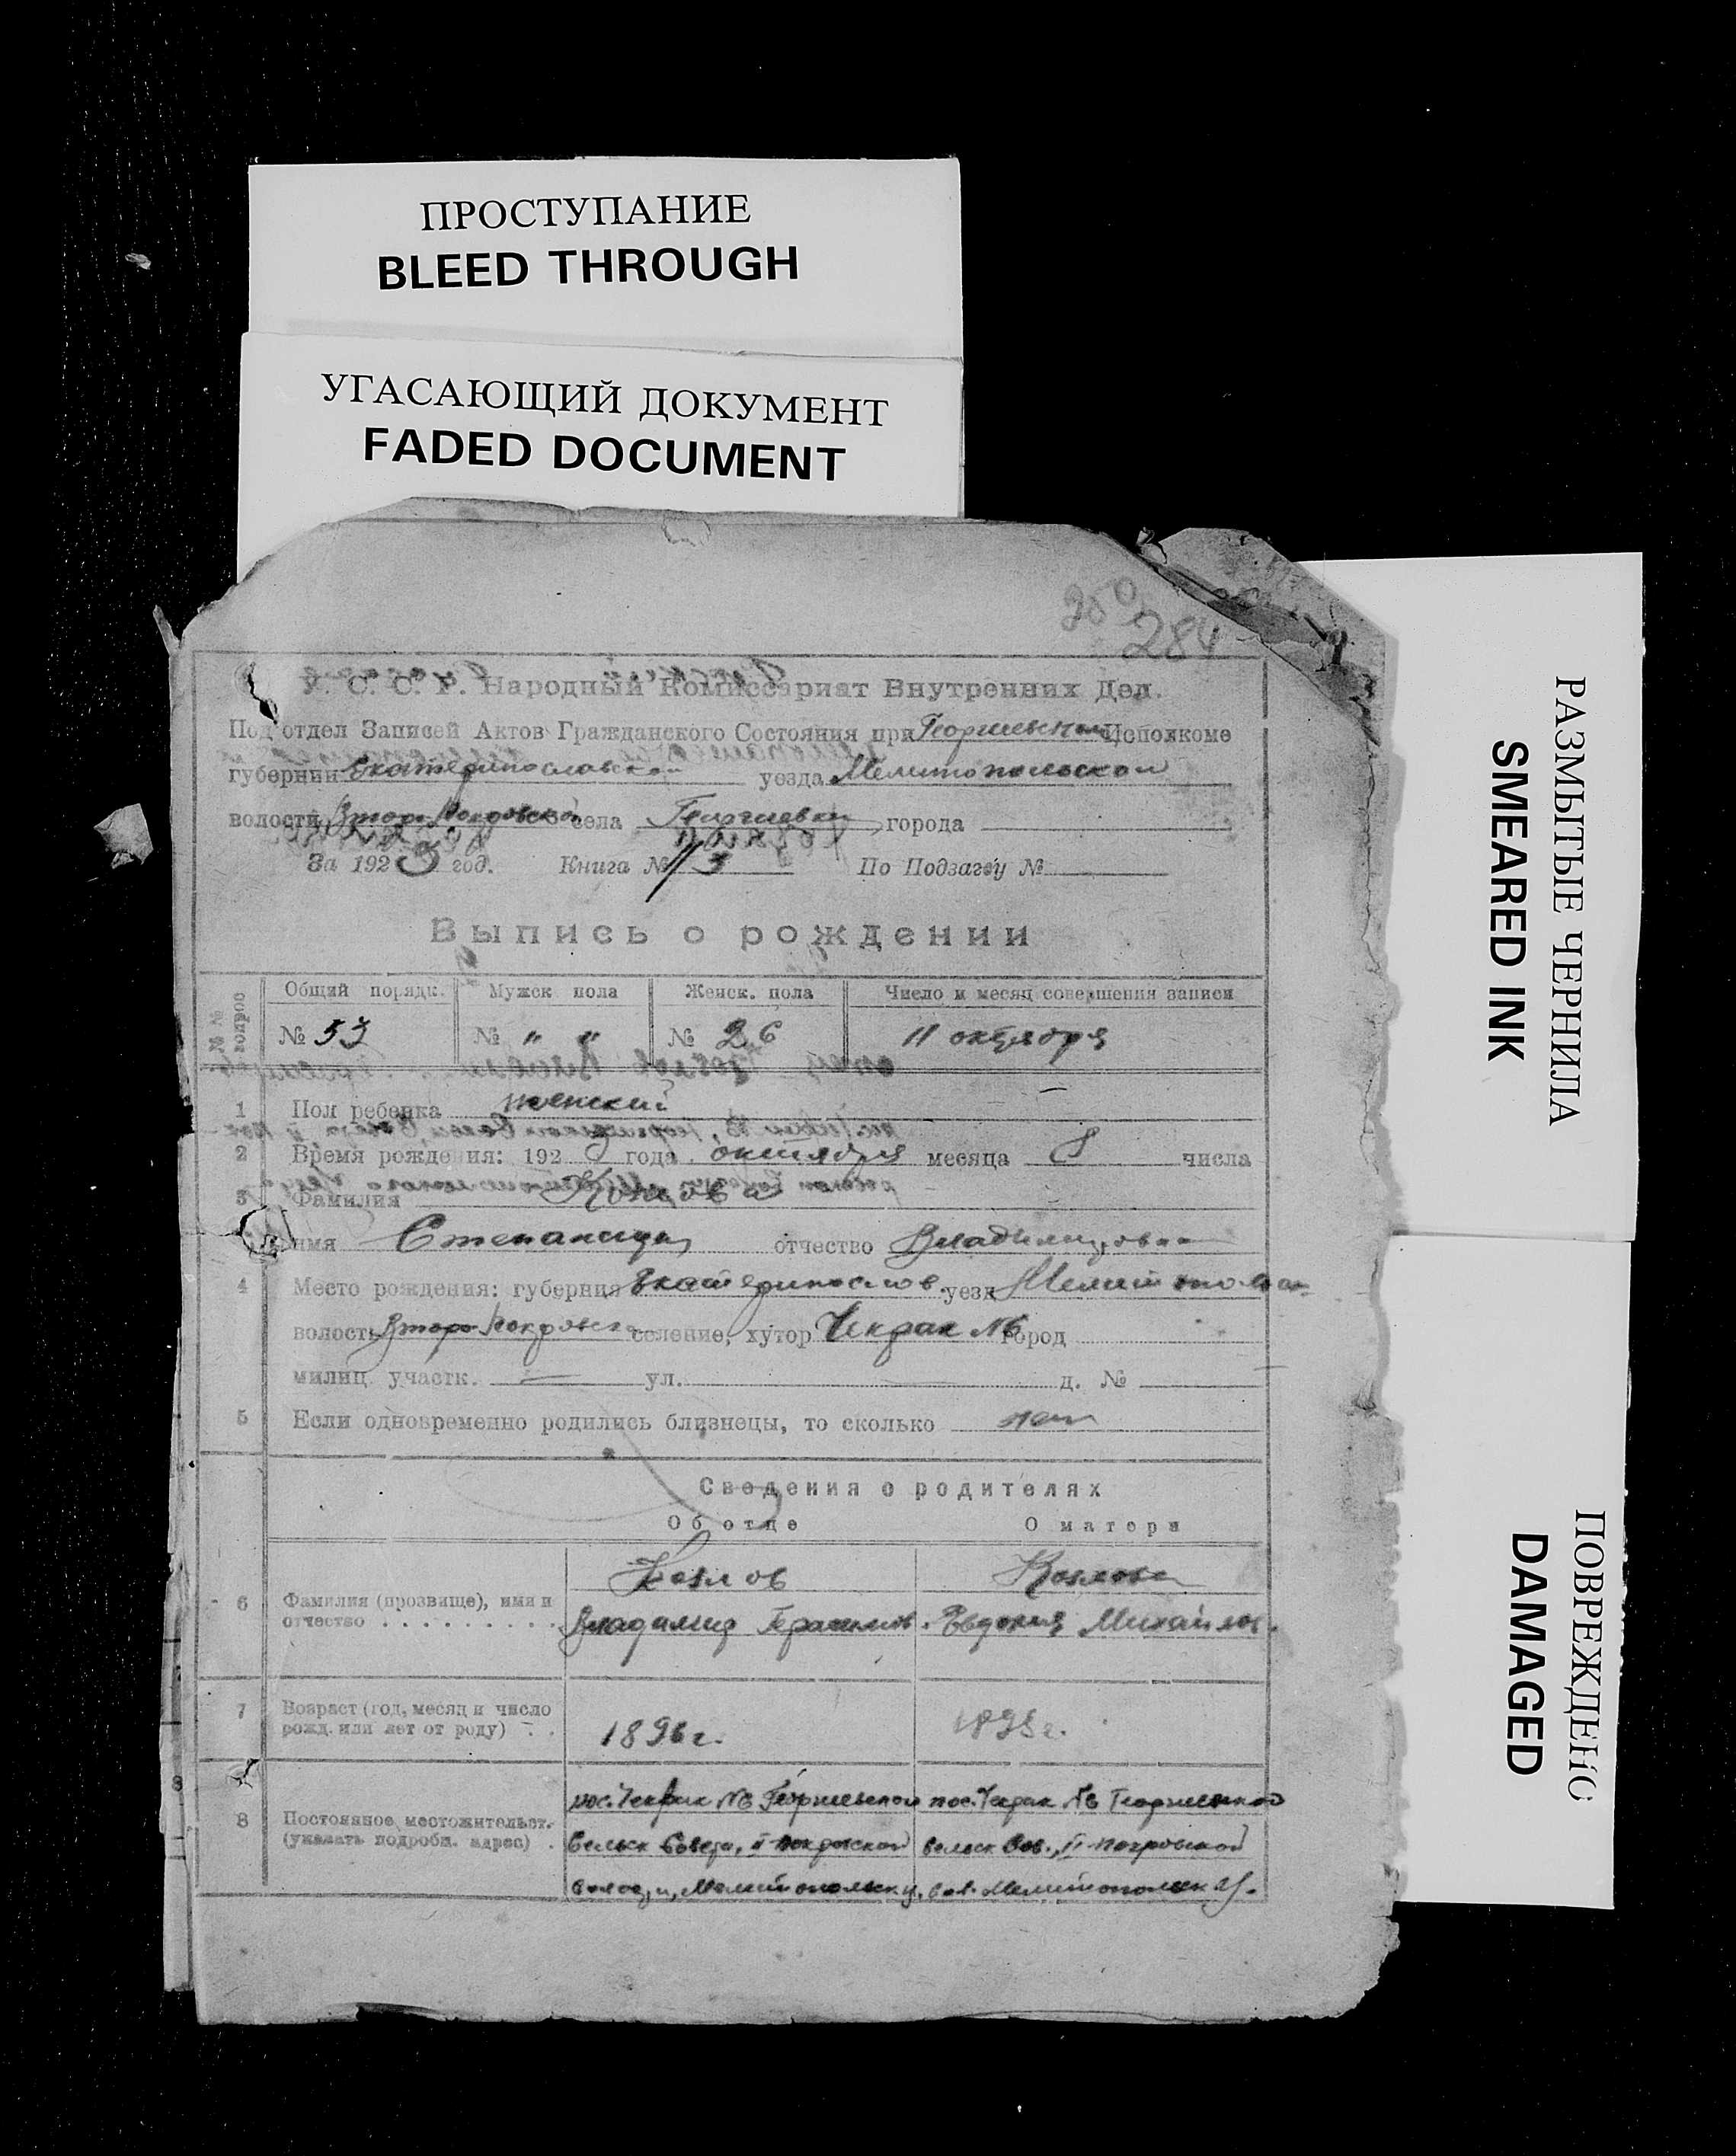 ПРОСТУПАНИЕ
BLEED THROUGH
УГАСАЮЩИЙ ДОКУМЕНТ
FADED DOCUMENT
РАЗМЫТЫЕ ЧЕРНИЛА
SMEARED INK
ПОВРЕЖДЕНО
DAMAGED
250
284
У. С. С. Р. Народный Комиссариат Внутренних Дел.
Под'отдел Записей Актов Гражданского Состояния при Георгиевском Исполкоме
губернии Екатеринославской уезда Мелитопольского
волости Второ-Покровской села Георгиевки города
За 1923 год. Книга № По Подзагсу №
Выпись о рождении
№№ вопрос
Общий порядк. Мужск пола Женск. пола Число и месяц совершения записи
№ 53 № " " № 26 11 октября
1 Пол ребенка женский
2 Время рождения: 192 года октября месяца 8 числа
3 Фамилия Козлова
имя Степанида отчество Владимировна
4 Место рождения: губерния Екатеринослов. уезд Мелитопольск
волость Второ-Покровск селение, хутор Чекрак №6 город
милиц. участк. — ул. д. №
5 Если одновременно родились близнецы, то сколько нет
Сведения о родителях
Об отце О матери
Козлов Козлова
6 Фамилия (прозвище), имя и
отчество . . . . . . . . . Владимир Герасимов. Евдокия Михайлов.
7 Возраст (год, месяц и число
рожд. или лет от роду) . . 1896 г. 189 г.
пос. Чекрак №6 Георгиевской пос. Чекрак №6 Георгиевской
8 Постоянное местожительст.
(указать подробн. адрес) . Сельск Совета, II-Покровской сельск Сов., II-Покровской
волости, Мелитопольск у. вол. Мелитопольск у.